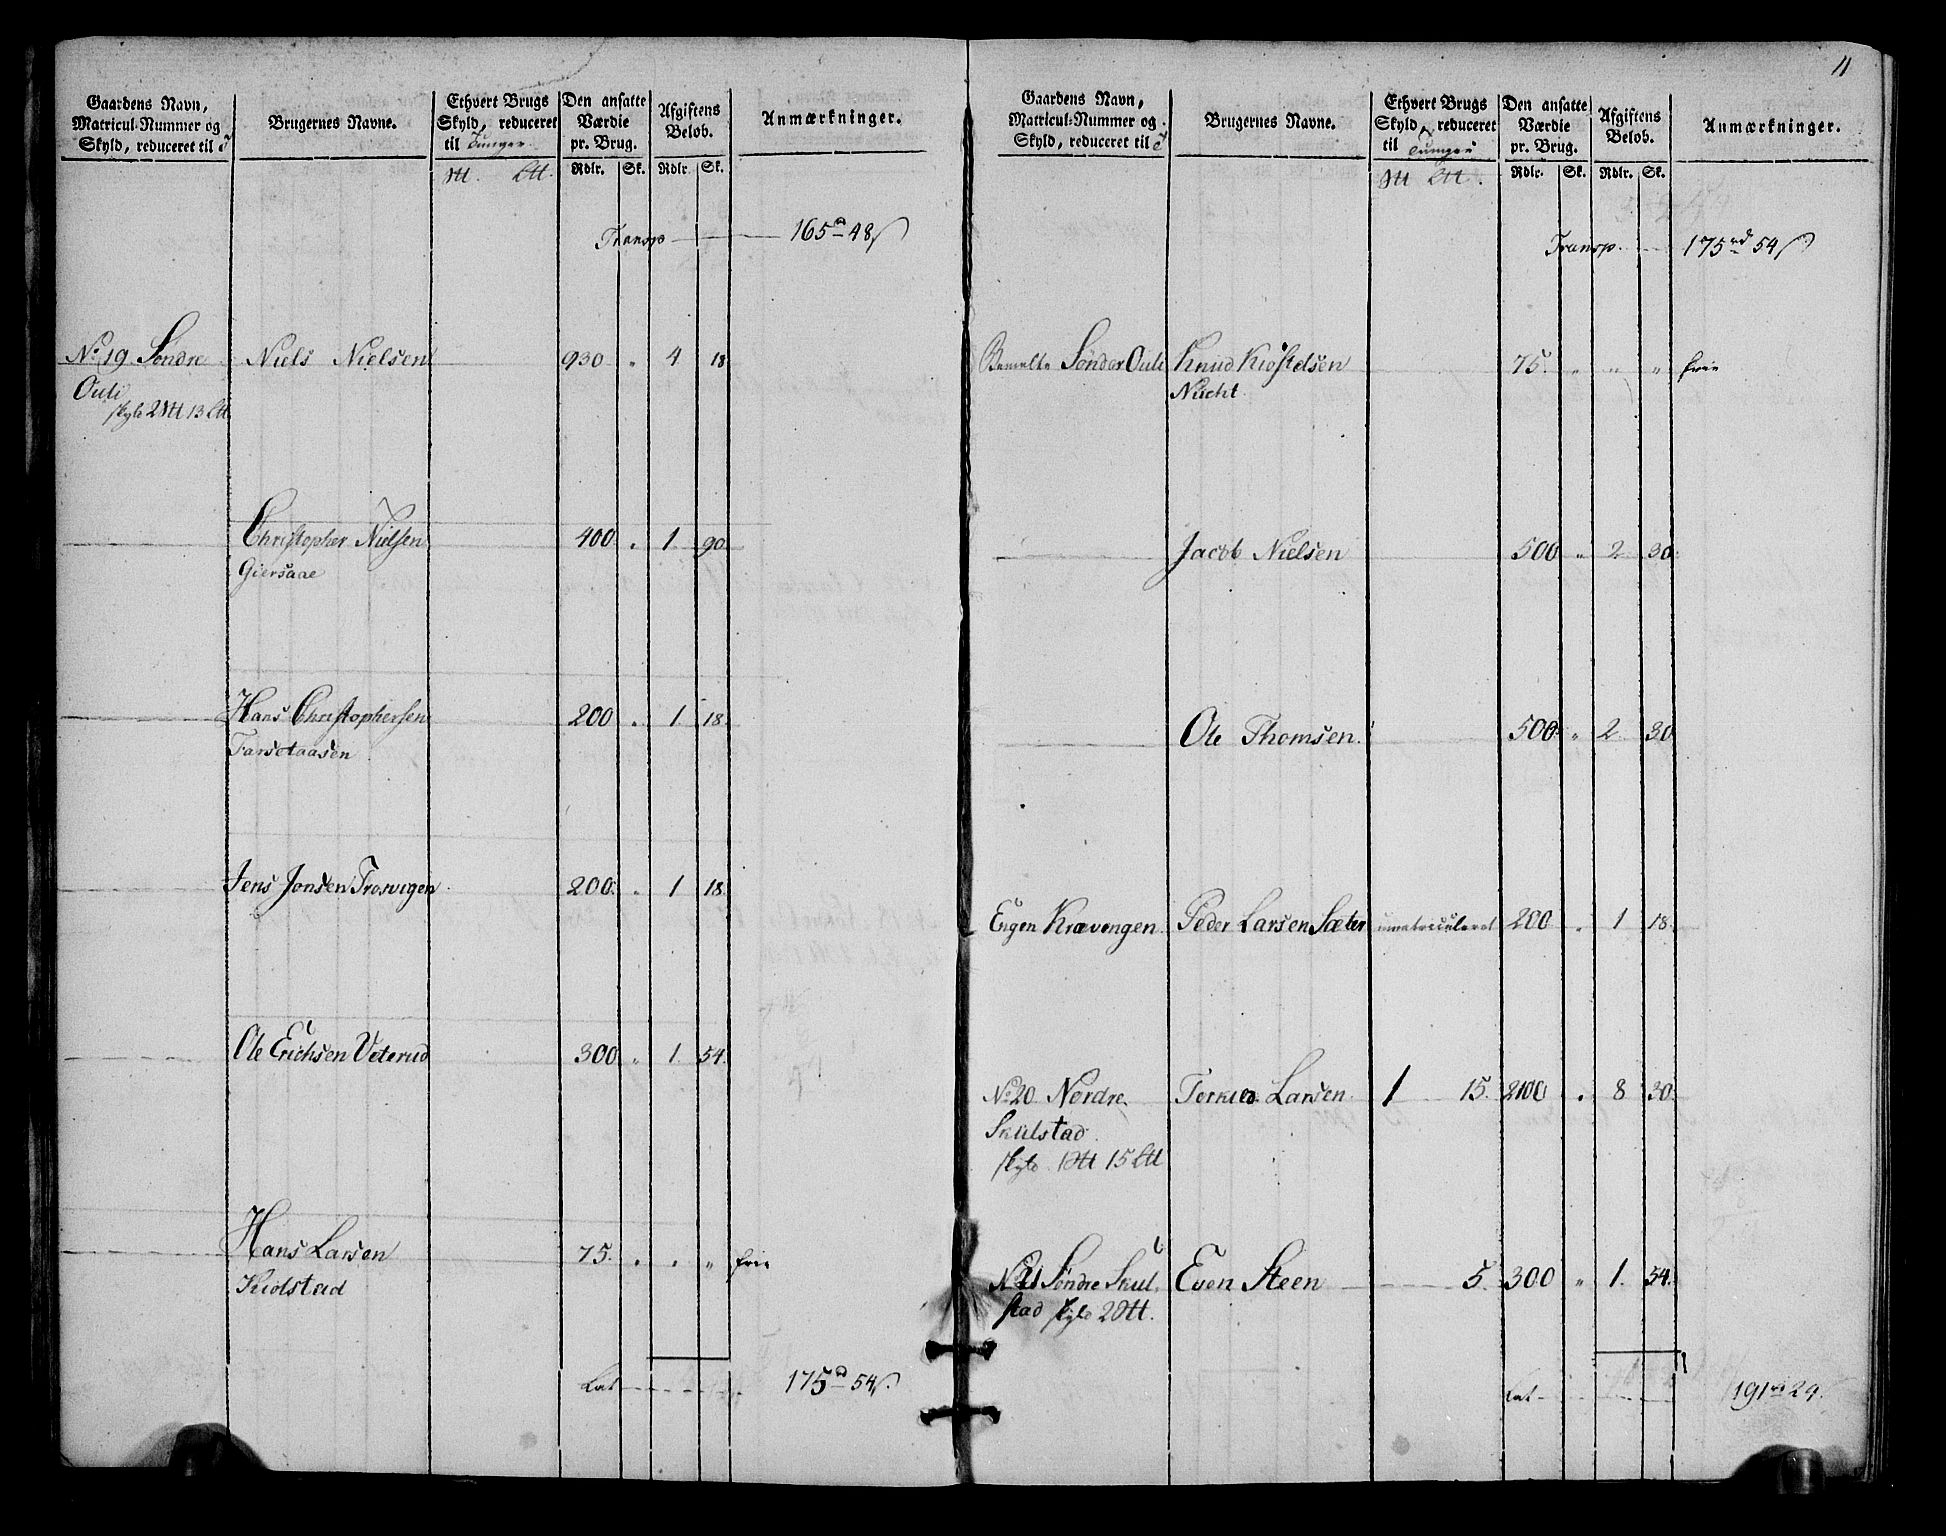 Gaardens Navn, Matricul-Nummer og Skyld, reduceret til
Brugernes Navne.
Ethvert Brugs Skyld, reduceret til Tunger
Den ansatte Værdie pr. Brug.
Afgiftens Beløb.
Anmærkninger.
Rdlr. Sk. Rdlr. Sk.
Transp 165 48
No 19 Søndre Niels Nielsen 930 " 4 18
Ouli
skyld 2 13
Christopher Nielsen 400 " 1 90
Giersaae
Hans Christophersen 200 " 1 18
Tarsetaasen
Jens Jonsen Trosvigen 200 " 1 18
Ole Erichsen Veterud 300 " 1 54
Hans Larsen 75 " " " frie
Kiolstad
Lat 175 54
11
Gaardens Navn, Matricul-Nummer og Skyld, reduceret til
Brugernes Navne.
Ethvert Brugs Skyld, reduceret til Tunger
Den ansatte Værdie pr. Brug.
Afgiftens Beløb.
Anmærkninger.
Rdlr. Sk. Rdlr. Sk.
Transp. 175 rd 54
Bemelte Sønder Ouli Knud Kiøstelsen 75 " " " frie
Nucht
Jacob Nielsen 500 " 2 30
Ole Thomsen 500 " 2 30
Engen Krævengen Peder Larsen Sæter umatriculeret 200 " 1 18
No 20 Nordre Torkild Larsen 1 15 2100 " 8 30
Skulstad
skyld 1 15
No 21 Søndre Skul- Even Steen 5 300 " 1 54
stad skyld 2
Lat 191 24